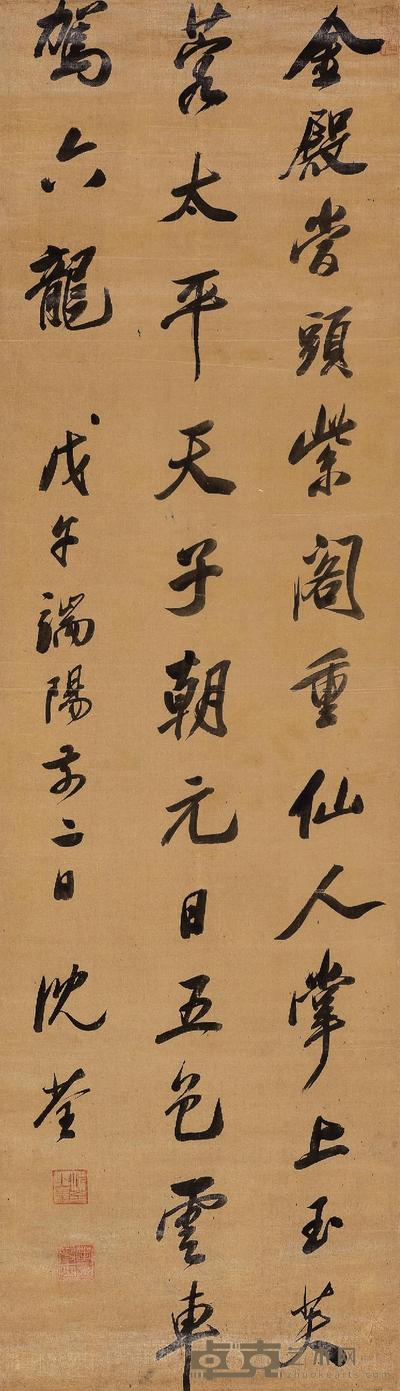 金殿當頭紫閣重仙人掌上玉芙
蓉太平天子朝元日五色雲車
駕六龍
戊午端陽前二日
沈荃
卓克艺术网